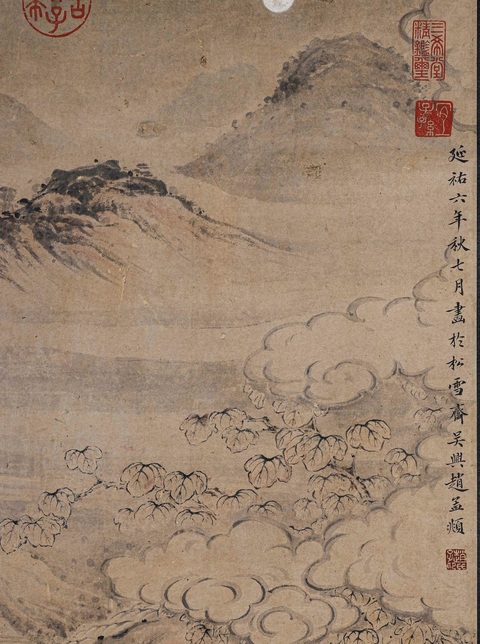 三希堂
精鑑璽
宜
子孫
延祐六年秋七月畫於松雪齋吳興趙孟頫